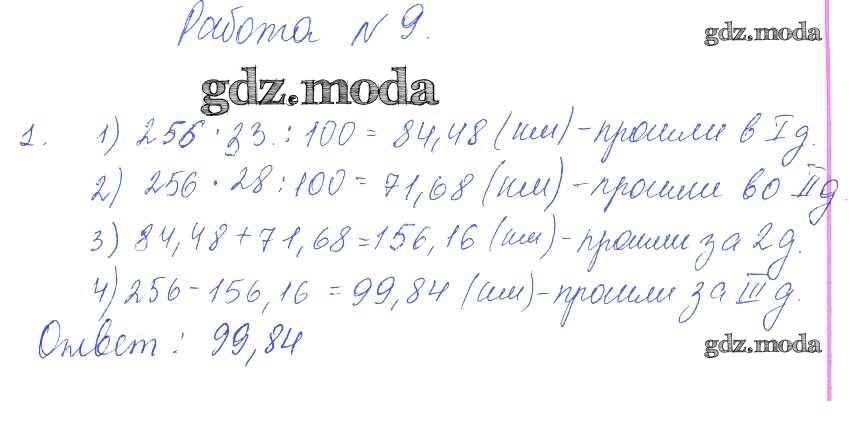 Работа № 9.
gdz.moda
gdz.moda
1. 1) 256 · 33 : 100 = 84,48 (км) - прошли в I д.
2) 256 · 28 : 100 = 71,68 (км) - прошли во II д.
3) 84,48 + 71,68 = 156,16 (км) - прошли за 2 д.
4) 256 - 156,16 = 99,84 (км) - прошли за III д.
Ответ: 99,84
gdz.moda